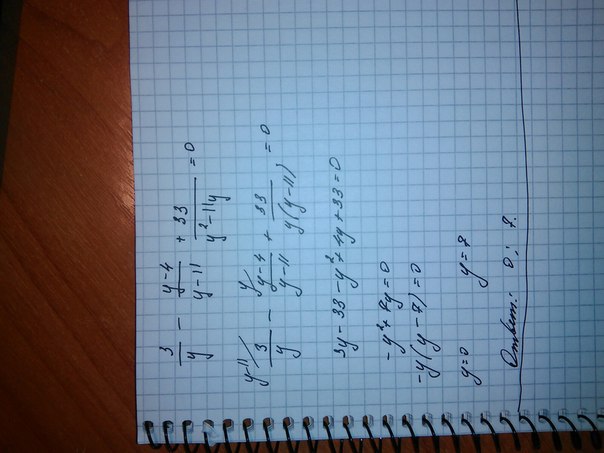 3/y − (y−4)/(y−11) + 33/(y²−11y) = 0
y−11/ 3/y − y/ (y−4)/(y−11) + 33/(y(y−11)) = 0
3y−33−y²+4y+33=0
−y²+7y=0
−y(y−7)=0
y=0 y=7
Ответ: 0; 7.